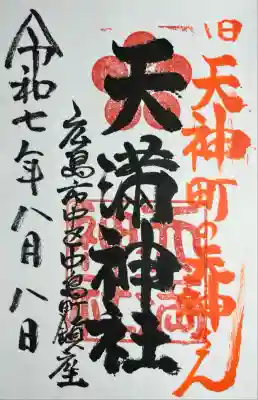 旧天神町の天神さん
天満神社
広島市中区中島町鎮座
令和七年八月八日